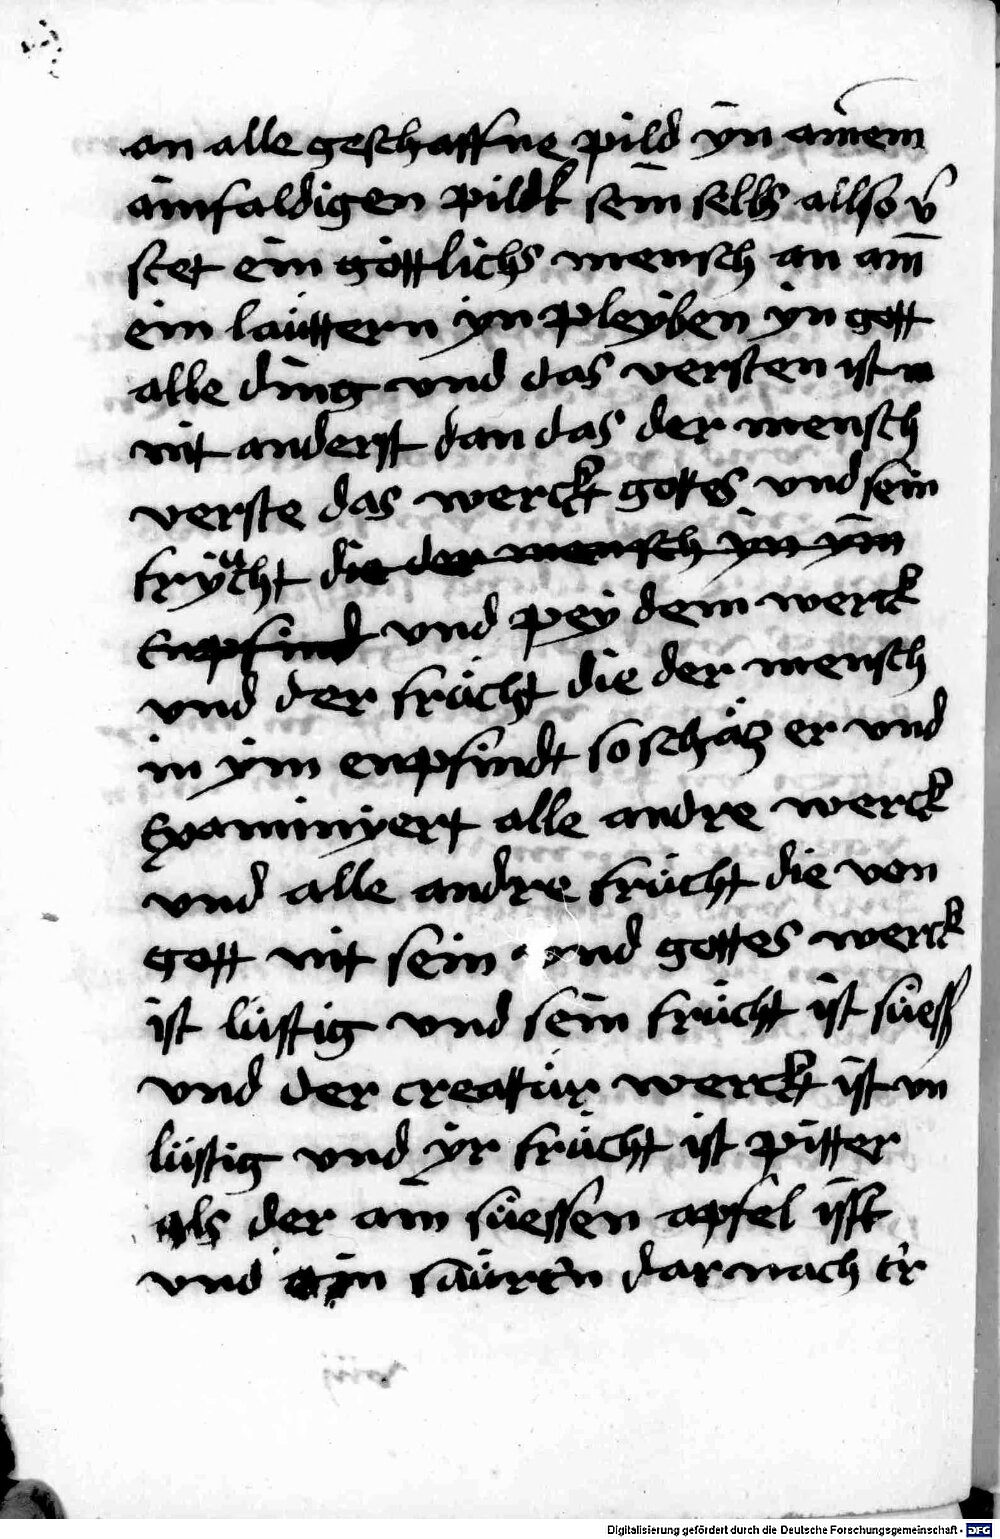 an alle geschaffne pild yn ainem
ainfaldigen pild sein selbs allso v̄
stet ein gottlichs mensch an aim
ein lauttern yn pleyben yn gott
alle ding vnd das versten ist
nit anderst dan das der mensch
verste das werckt gottes vnd sein
frücht die der mensch yn ym
enpfind vnd pey dem werck
vnd der frücht die der mensch
in ym enpfindt so schätz er vnd
Examinyert alle andre werck
vnd alle andre frücht die von
gott nit sein vnd gottes werck
ist lüstig vnd sein frücht ist süess
vnd der creattur werckt ist vn
lüstig vnd yr frücht ist pitter
als der ain süessen apfel isst
vnd ain sauren darnach er
Digitalisierung gefördert durch die Deutsche Forschungsgemeinschaft - DFG